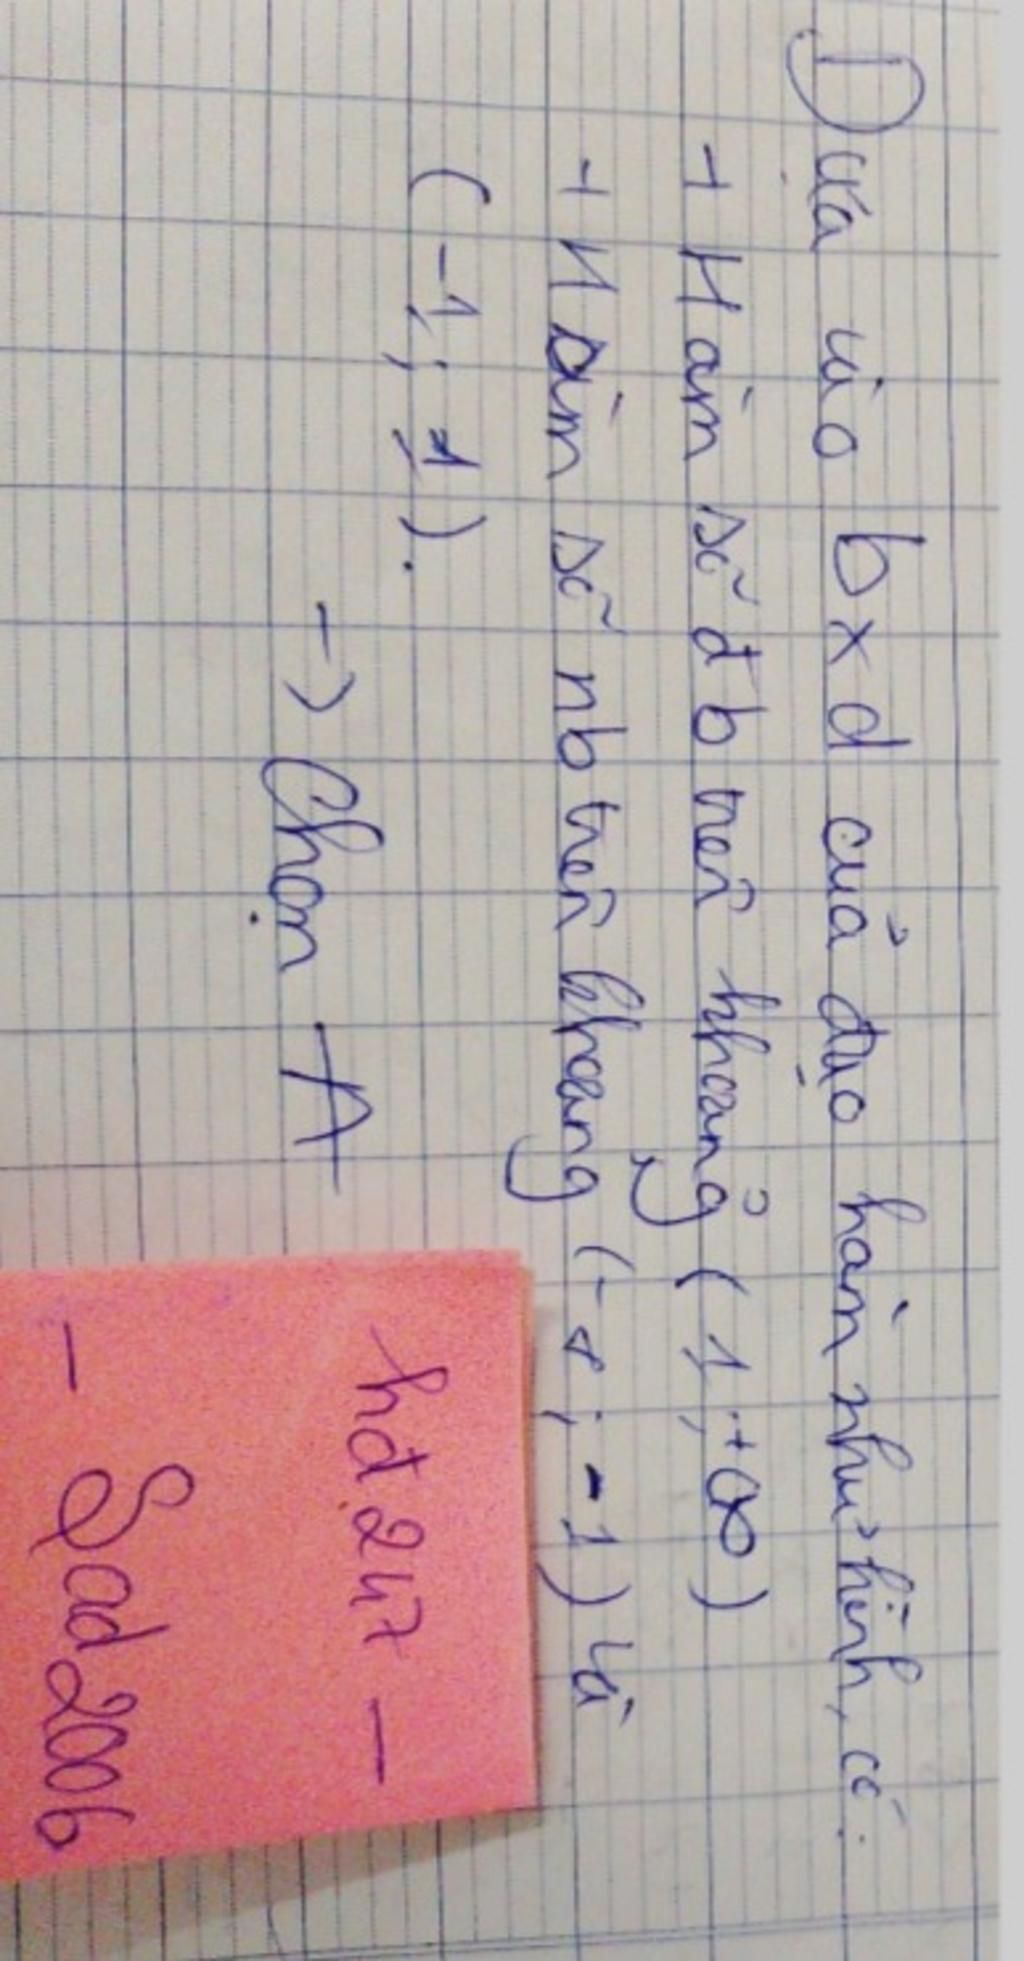 Dựa vào bxd của đạo hàm như hình, có:
+ Hàm số đb trên khoảng (1; +∞)
+ Hàm số nb trên khoảng (-∞; -1) và
(-1; 1).
-> Chọn A
hd 247 -
- Sad2006